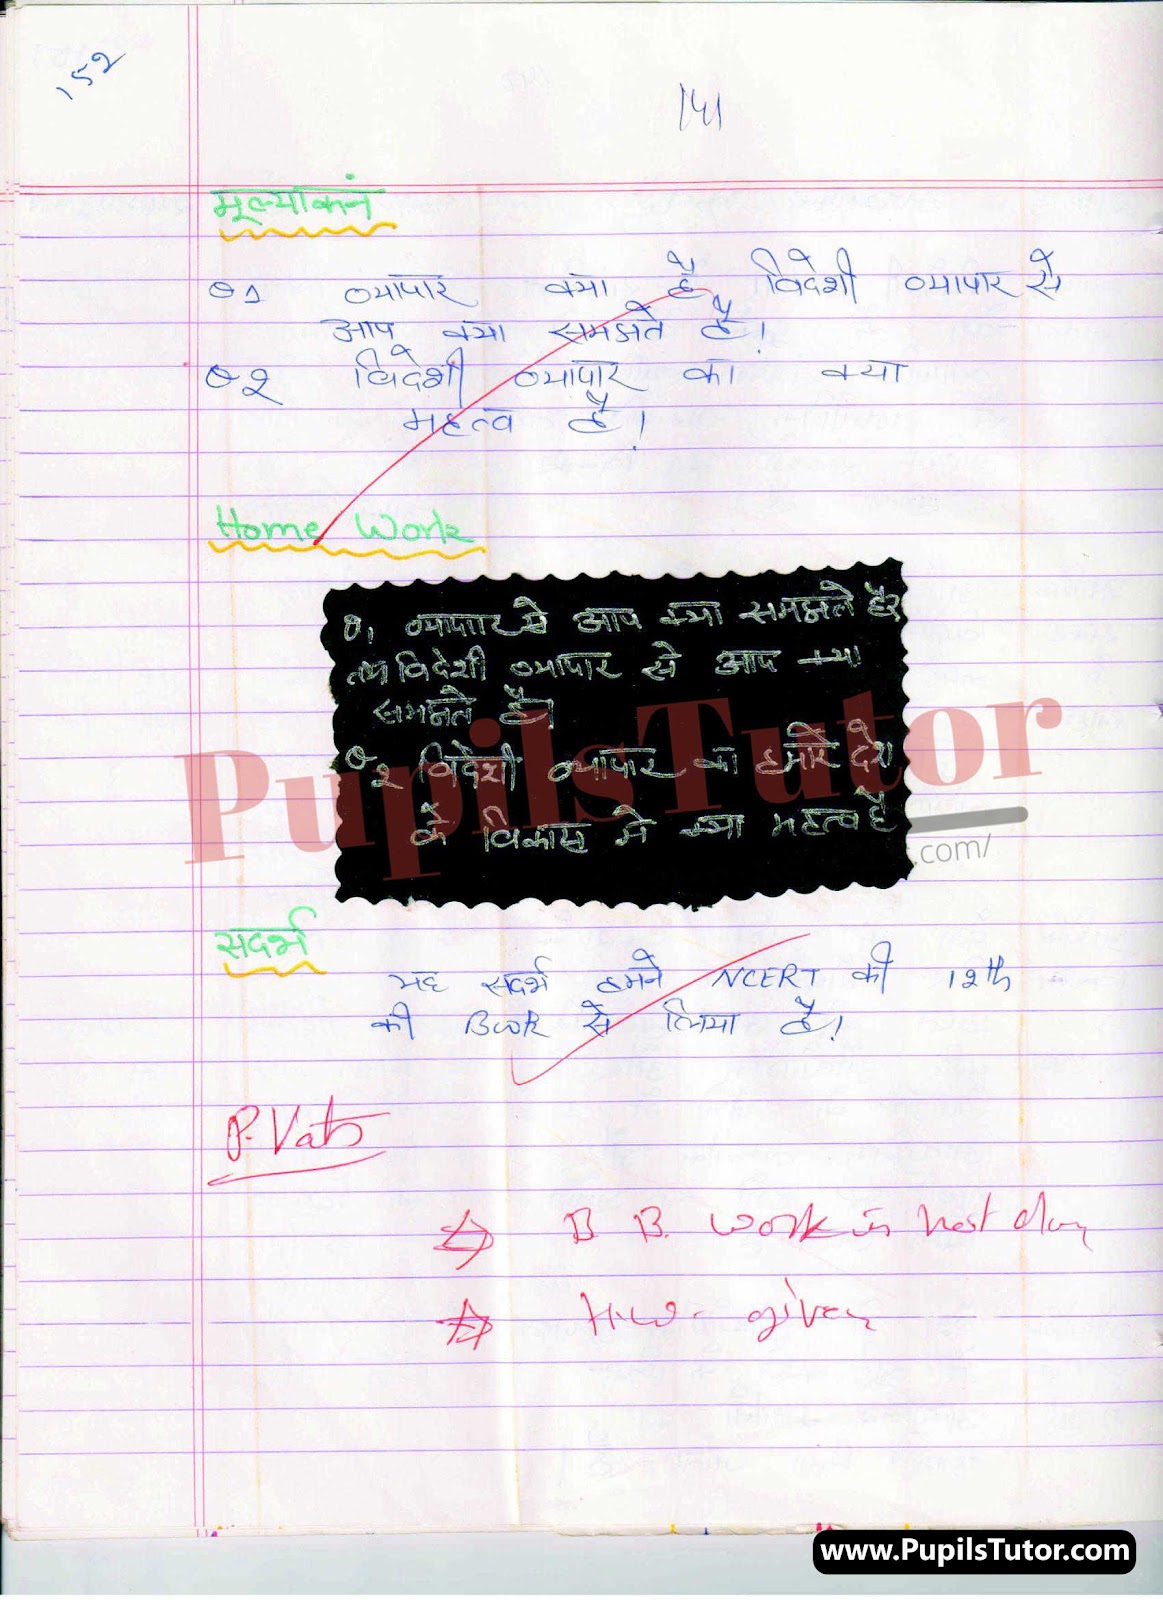 152
141
मूल्यांकनं
Q1 व्यापार क्या है विदेशी व्यापार से
आप क्या समझते है।
Q2 विदेशी व्यापार का क्या
महत्व है।
Home Work
Q1 व्यापार से आप क्या समझते है?
तथा विदेशी व्यापार से आप क्या
समझते है।
Q2 विदेशी व्यापार का हमारे देश
के विकास मे क्या महत्व है
PupilsTutor
.com/
सदर्भ
यह सदर्भ हमने NCERT की 12th
की Book से लिया है।
P. Vats
B B. work is
H.W. given
www.PupilsTutor.com